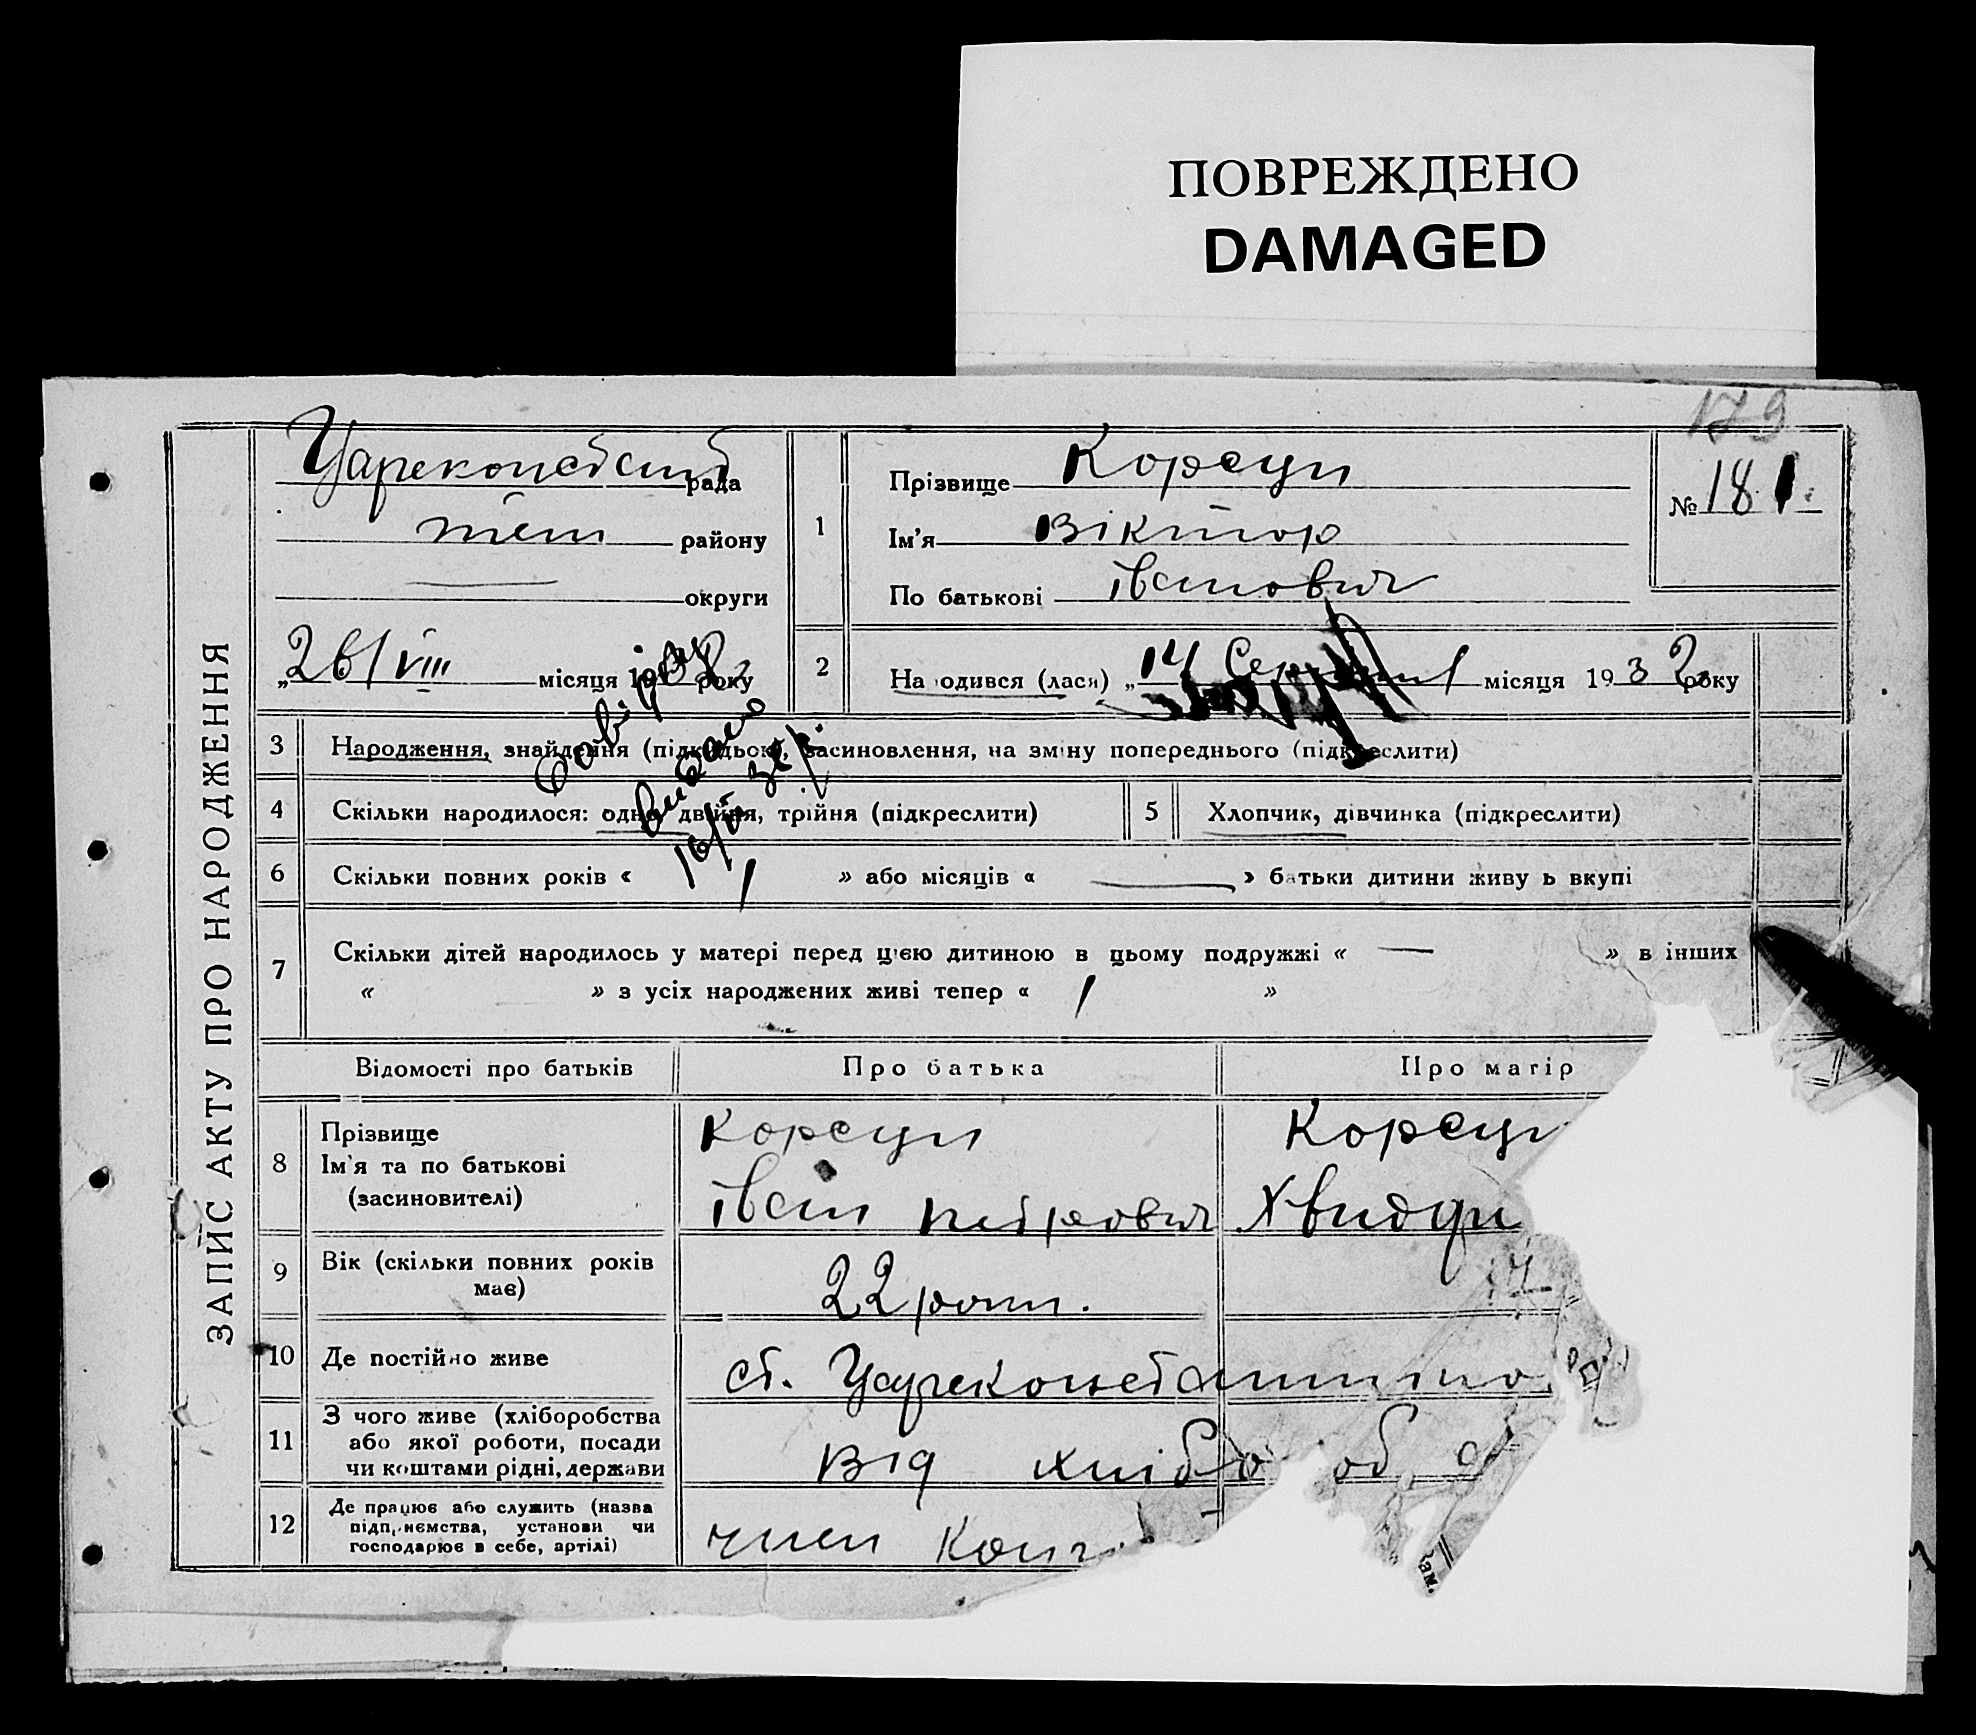 ПОВРЕЖДЕНО
DAMAGED
179
ЗАПИС АКТУ ПРО НАРОДЖЕННЯ
рада
району
округи
„26/VIII місяця 1932 року
1
Прізвище Корсун
Ім'я Віктор
По батькові Іванович
№ 181.
2
На одився (лася) „14 Серпня місяця 1932 року
3
Народження, знайдення (підкидьок), засиновлення, на зміну попереднього (підкреслити)
Видано
4
Скільки народилося: одно, двійня, трійня (підкреслити)
5
Хлопчик, дівчинка (підкреслити)
6
Скільки повних років « 1 » або місяців « — » батьки дитини живу ь вкупі
7
Скільки дітей народилось у матері перед цією дитиною в цьому подружжі « — » в інших
« » з усіх народжених живі тепер « 1 »
Відомості про батьків
Про батька
Про матір
8
Прізвище
Ім'я та по батькові
(засиновителі)
Корсун
Іван Петрович
Корсун
9
Вік (скільки повних років
має)
22 роки.
17
10
Де постійно живе
ст. Цареконстантино
11
З чого живе (хліборобства
або якої роботи, посади
чи коштами рідні, держави
від хлібороб
12
Де працює або служить (назва
підприємства, установи чи
господарює в себе, артілі)
член